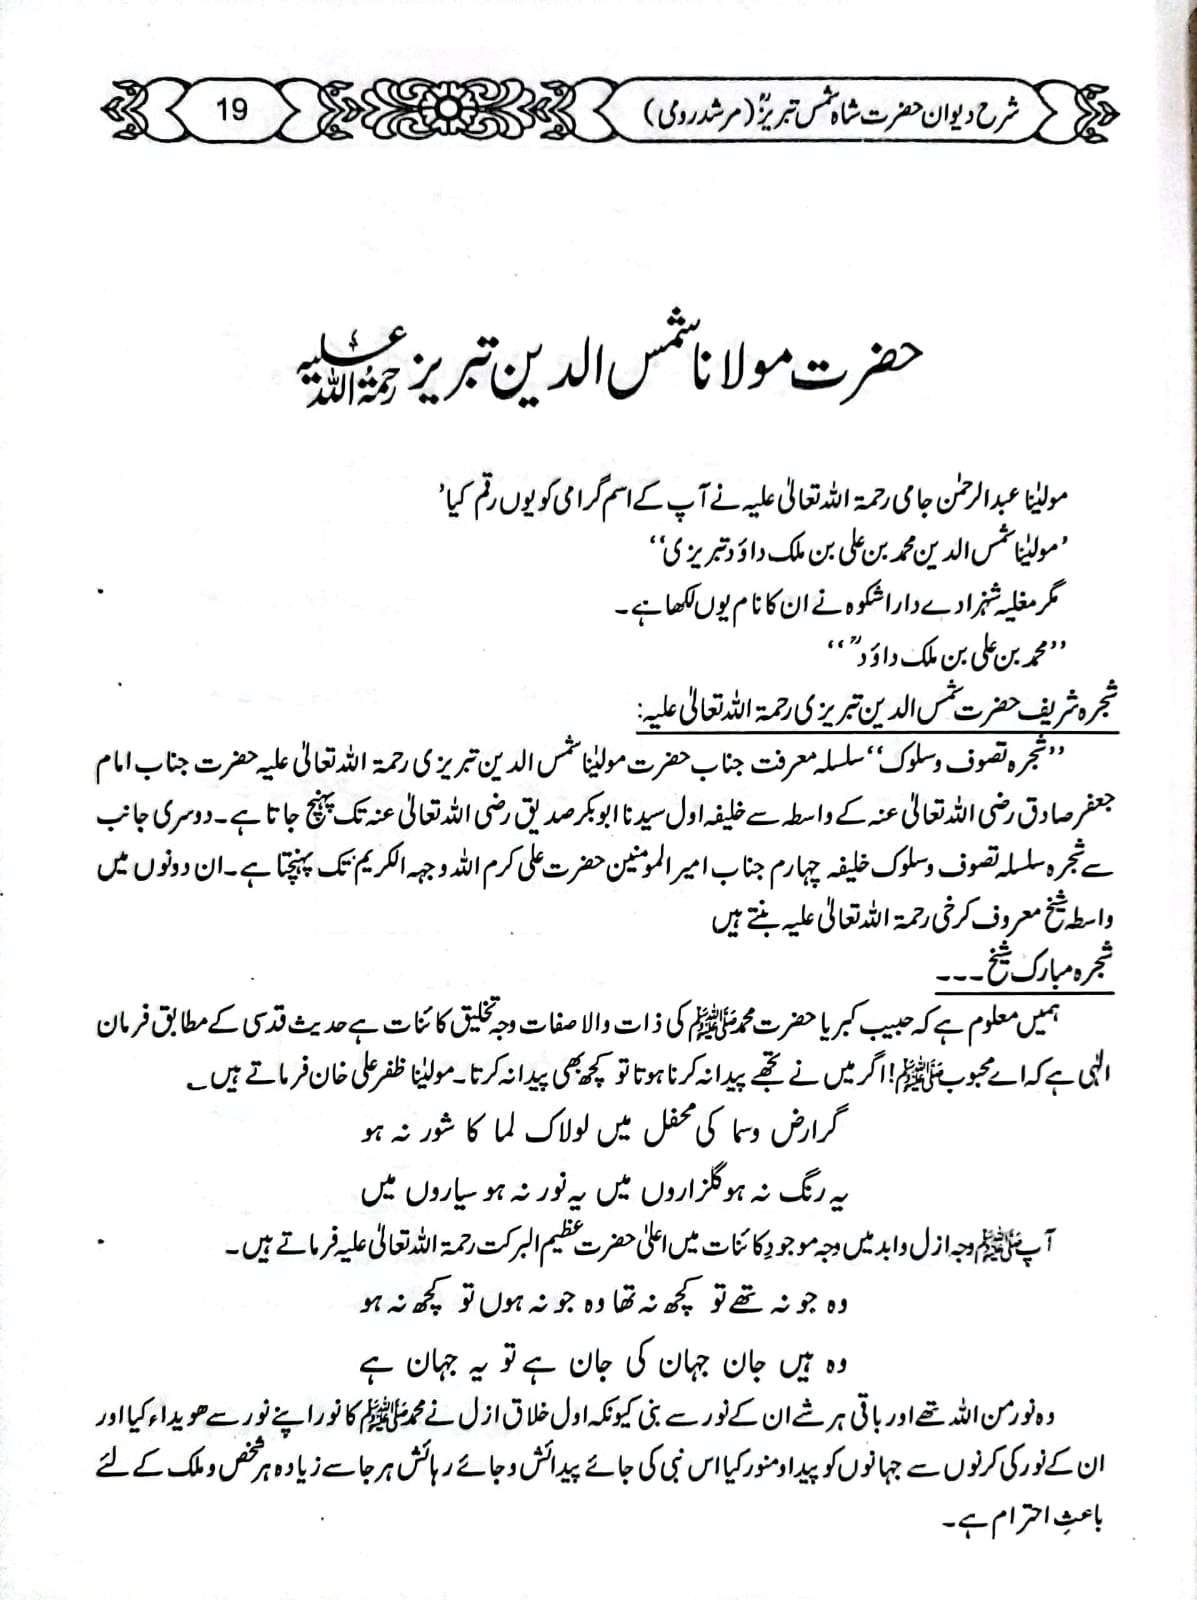 شرح دیوان حضرت شاہ شمس تبریزؒ (مرشد رومی)
19
حضرت مولانا شمس الدین تبریز رحمۃ اللہ علیہ
مولیٰنا عبدالرحمٰن جامی رحمۃ اللہ تعالیٰ علیہ نے آپ کے اسم گرامی کو یوں رقم کیا’
’مولیٰنا شمس الدین محمد بن علی بن ملک داؤد تبریزی‘‘
مگر مغلیہ شہزادے دارا شکوہ نے ان کا نام یوں لکھا ہے۔
’’محمد بن علی بن ملک داؤدؒ‘‘
شجرہ شریف حضرت شمس الدین تبریزی رحمۃ اللہ تعالیٰ علیہ:
’’شجرہ تصوف و سلوک‘‘ سلسلہ معرفت جناب حضرت مولیٰنا شمس الدین تبریزی رحمۃ اللہ تعالیٰ علیہ حضرت جناب امام
جعفر صادق رضی اللہ تعالیٰ عنہ کے واسطہ سے خلیفہ اول سیدنا ابوبکر صدیق رضی اللہ تعالیٰ عنہ تک پہنچ جاتا ہے۔ دوسری جانب
سے شجرہ سلسلہ تصوف و سلوک خلیفہ چہارم جناب امیر المومنین حضرت علی کرم اللہ وجہہ الکریم تک پہنچتا ہے۔ ان دونوں میں
واسطہ شیخ معروف کرخی رحمۃ اللہ تعالیٰ علیہ بنتے ہیں
شجرہ مبارک شیخ ۔۔۔
ہمیں معلوم ہے کہ حبیب کبریا حضرت محمد ﷺ کی ذات والا صفات وجہ تخلیق کائنات ہے حدیث قدسی کے مطابق فرمان
الٰہی ہے کہ اے محبوب ﷺ! اگر میں نے تجھے پیدا نہ کرنا ہوتا تو کچھ بھی پیدا نہ کرتا۔ مولیٰنا ظفر علی خان فرماتے ہیں ؎
گر ارض و سما کی محفل میں لولاک لما کا شور نہ ہو
یہ رنگ نہ ہو گلزاروں میں یہ نور نہ ہو سیاروں میں
آپ ﷺ وجہ ازل و ابد میں وجہ موجودِ کائنات میں اعلیٰ حضرت عظیم البرکت رحمۃ اللہ تعالیٰ علیہ فرماتے ہیں۔
وہ جو نہ تھے تو کچھ نہ تھا وہ جو نہ ہوں تو کچھ نہ ہو
وہ ہیں جان جہان کی جان ہے تو یہ جہان ہے
وہ نور من اللہ تھے اور باقی ہر شے ان کے نور سے بنی کیونکہ اول خلاق ازل نے محمد ﷺ کا نور اپنے نور سے ھویداء کیا اور
ان کے نور کی کرنوں سے جہانوں کو پیدا و منور کیا اس نبی کی جائے پیدائش و جائے رہائش ہر جا سے زیادہ ہر شخص و ملک کے لئے
باعثِ احترام ہے۔